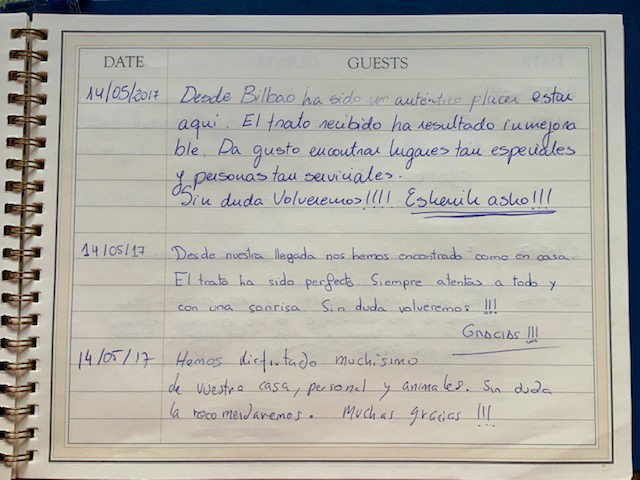 DATE GUESTS
14/05/2017 Desde Bilbao ha sido un auténtico placer estar
aquí. El trato recibido ha resultado inmejora
ble. Da gusto encontrar lugares tan especiales
y personas tan serviciales.
Sin duda Volveremos!!!! Eskerrik asko!!!
14/05/17 Desde nuestra llegada nos hemos encontrado como en casa.
El trato ha sido perfecto. Siempre atentas a todo y
con una sonrisa. Sin duda volveremos !!!
GRACIAS !!!
14/05/17 Hemos disfrutado muchísimo
de vuestra casa, personal y animales. Sin duda
la recomendaremos. Muchas gracias !!!